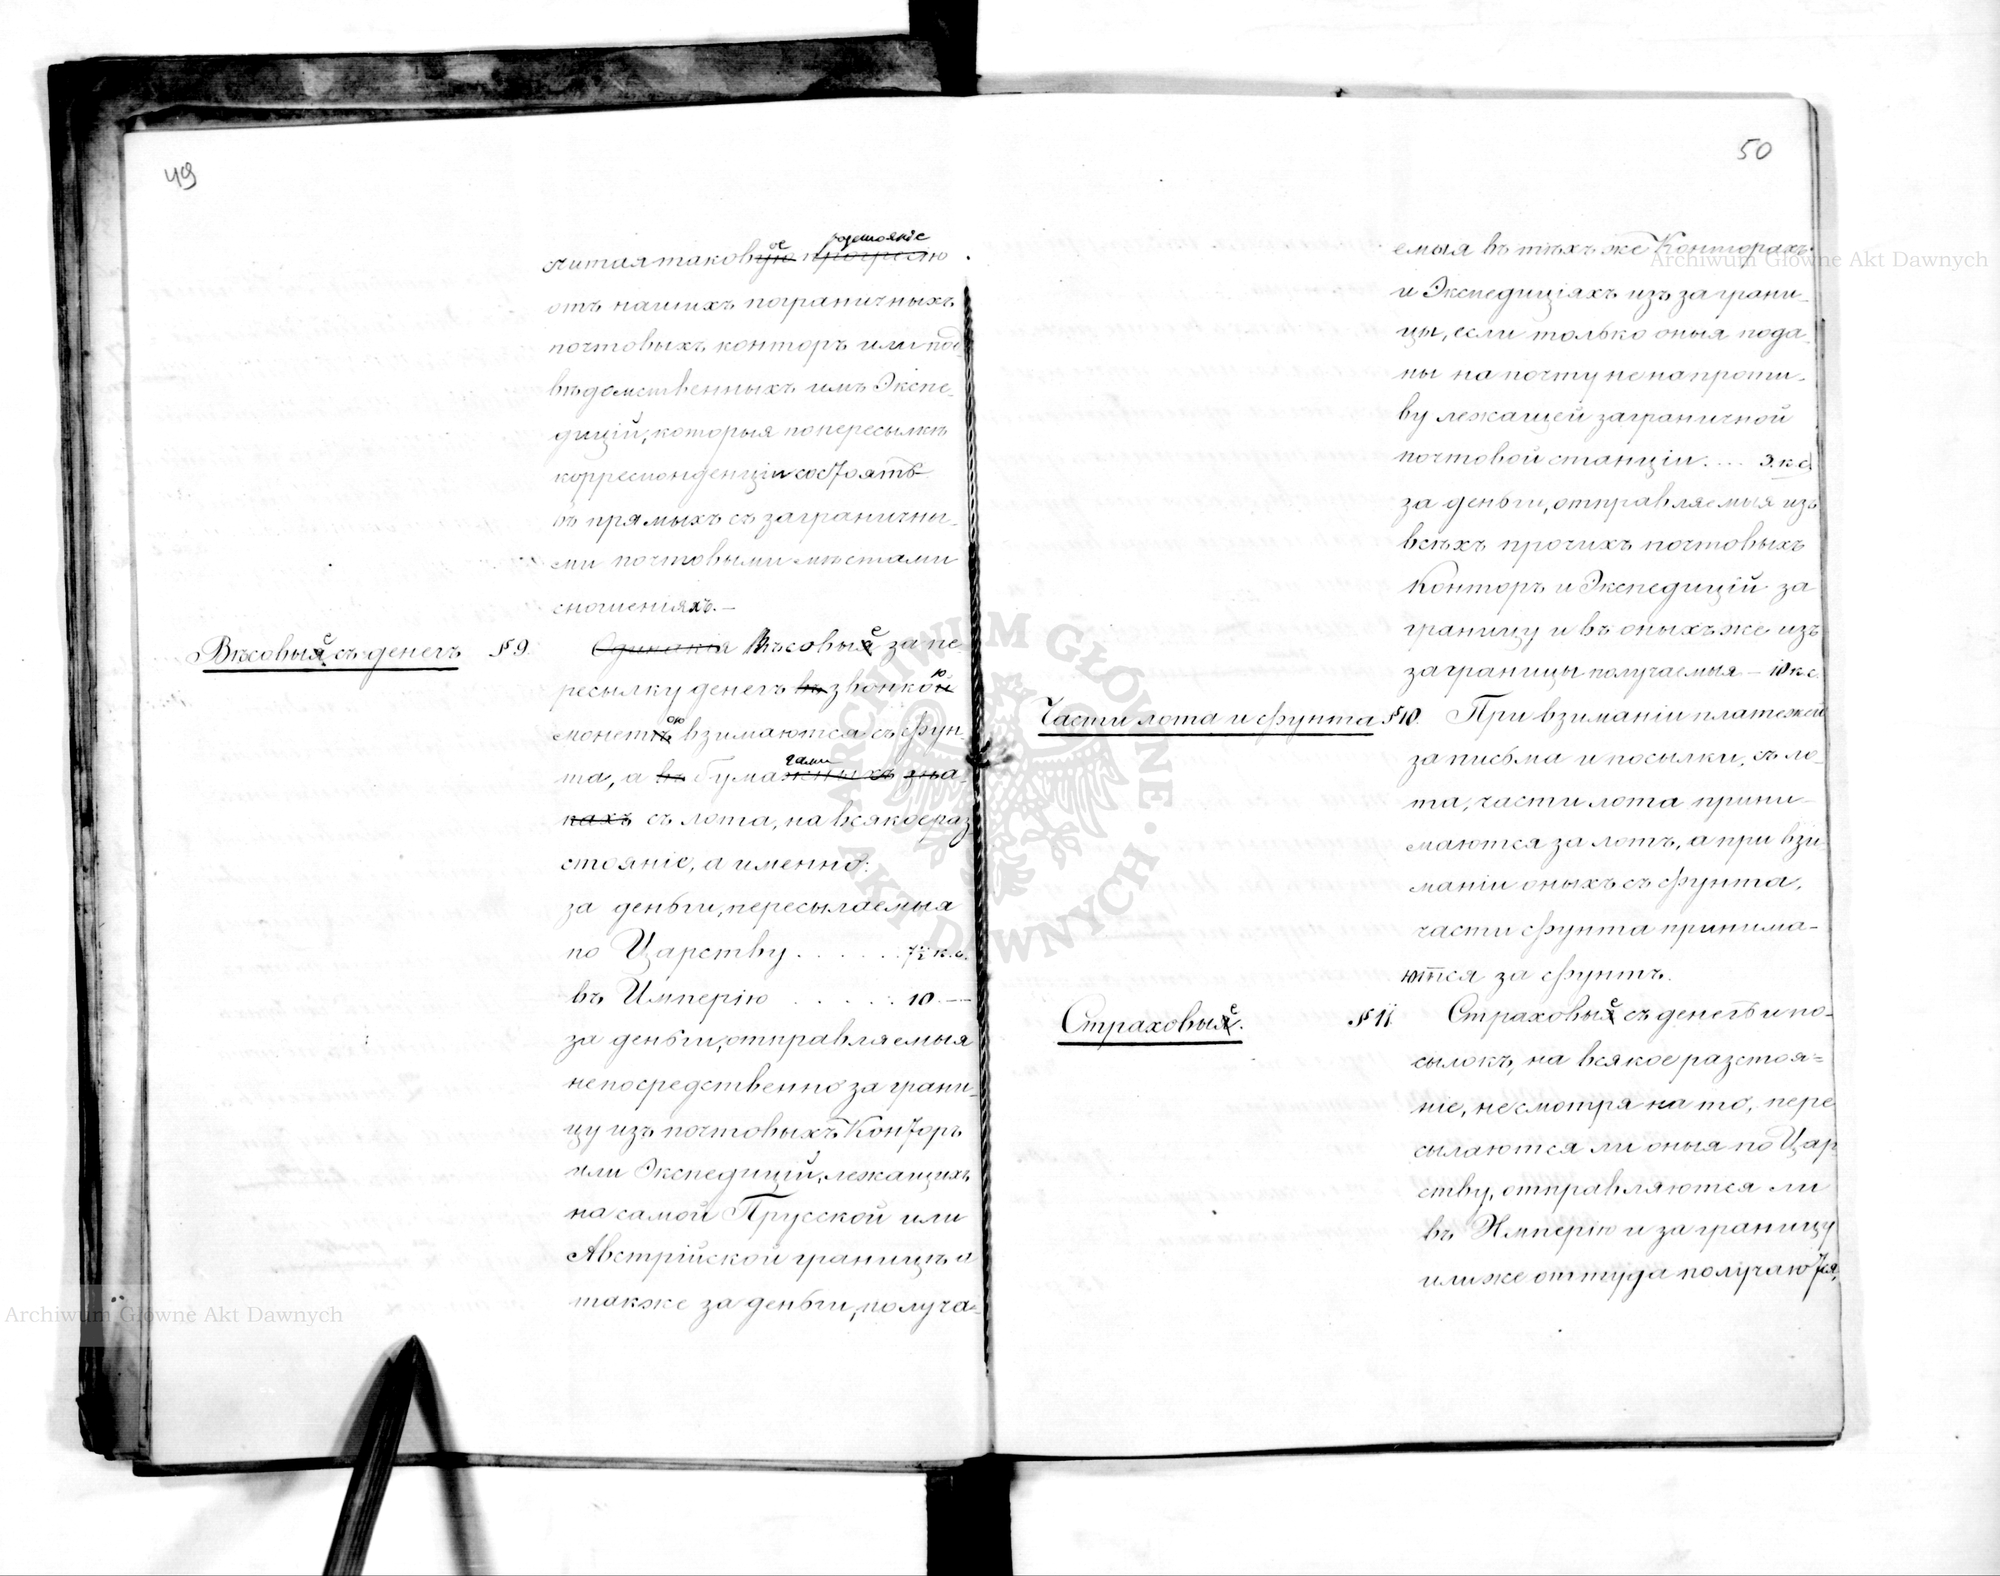 49
считая таковое разстояніе
отъ нашихъ пограничныхъ
почтовыхъ конторъ или под
вѣдомственныхъ имъ Экспе-
дицій, которыя по пересылкѣ
корреспонденціи состоятъ
въ прямыхъ съ заграничны-
ми почтовыми мѣстами
сношеніяхъ.—
Вѣсовые съ денегъ §9. Одинакія Вѣсовые за пе
ресылку денегъ въ звонкою
монетою взимаются съ фун-
та, а въ бумагами зна-
кахъ съ лота, на всякое раз
стояніе, а именно:
за деньги, пересылаемыя
по Царству . . . . . . 7½ к.с.
въ Имперію . . . . . 10 —
за деньги, отправляемыя
непосредственно за грани-
цу изъ почтовыхъ Конторъ
или Экспедицій, лежащихъ
на самой Прусской или
Австрійской границѣ а
также за деньги, получа-
50
емыя въ тѣхъ же Конторахъ
и Экспедиціяхъ изъ заграни-
цы, если только оныя пода-
ны на почту не напроти-
ву лежащей заграничной
почтовой станціи. . . . 3 к с.
за деньги, отправляемыя изъ
всѣхъ прочихъ почтовыхъ
Конторъ и Экспедицій за
границу и въ оныхъ же изъ
заграницы получаемыя — 10 к с.
Части лота и фунта §10. При взиманіи платежей
за письма и посылки, съ ло-
та, части лота прини-
маются за лотъ, а при взи
маніи оныхъ съ фунта,
части фунта принима-
ются за фунтъ.
Страховые. §11. Страховые съ денегъ и по-
сылокъ, на всякое разстоя=
ніе, несмотря на то, пере
сылаются ли оныя по Цар
ству, отправляются ли
въ Имперію и за границу
или же оттуда получаются,
Archiwum Główne Akt Dawnych
Archiwum Główne Akt Dawnych
ARCHIWUM GŁÓWNE · AKT DAWNYCH ·